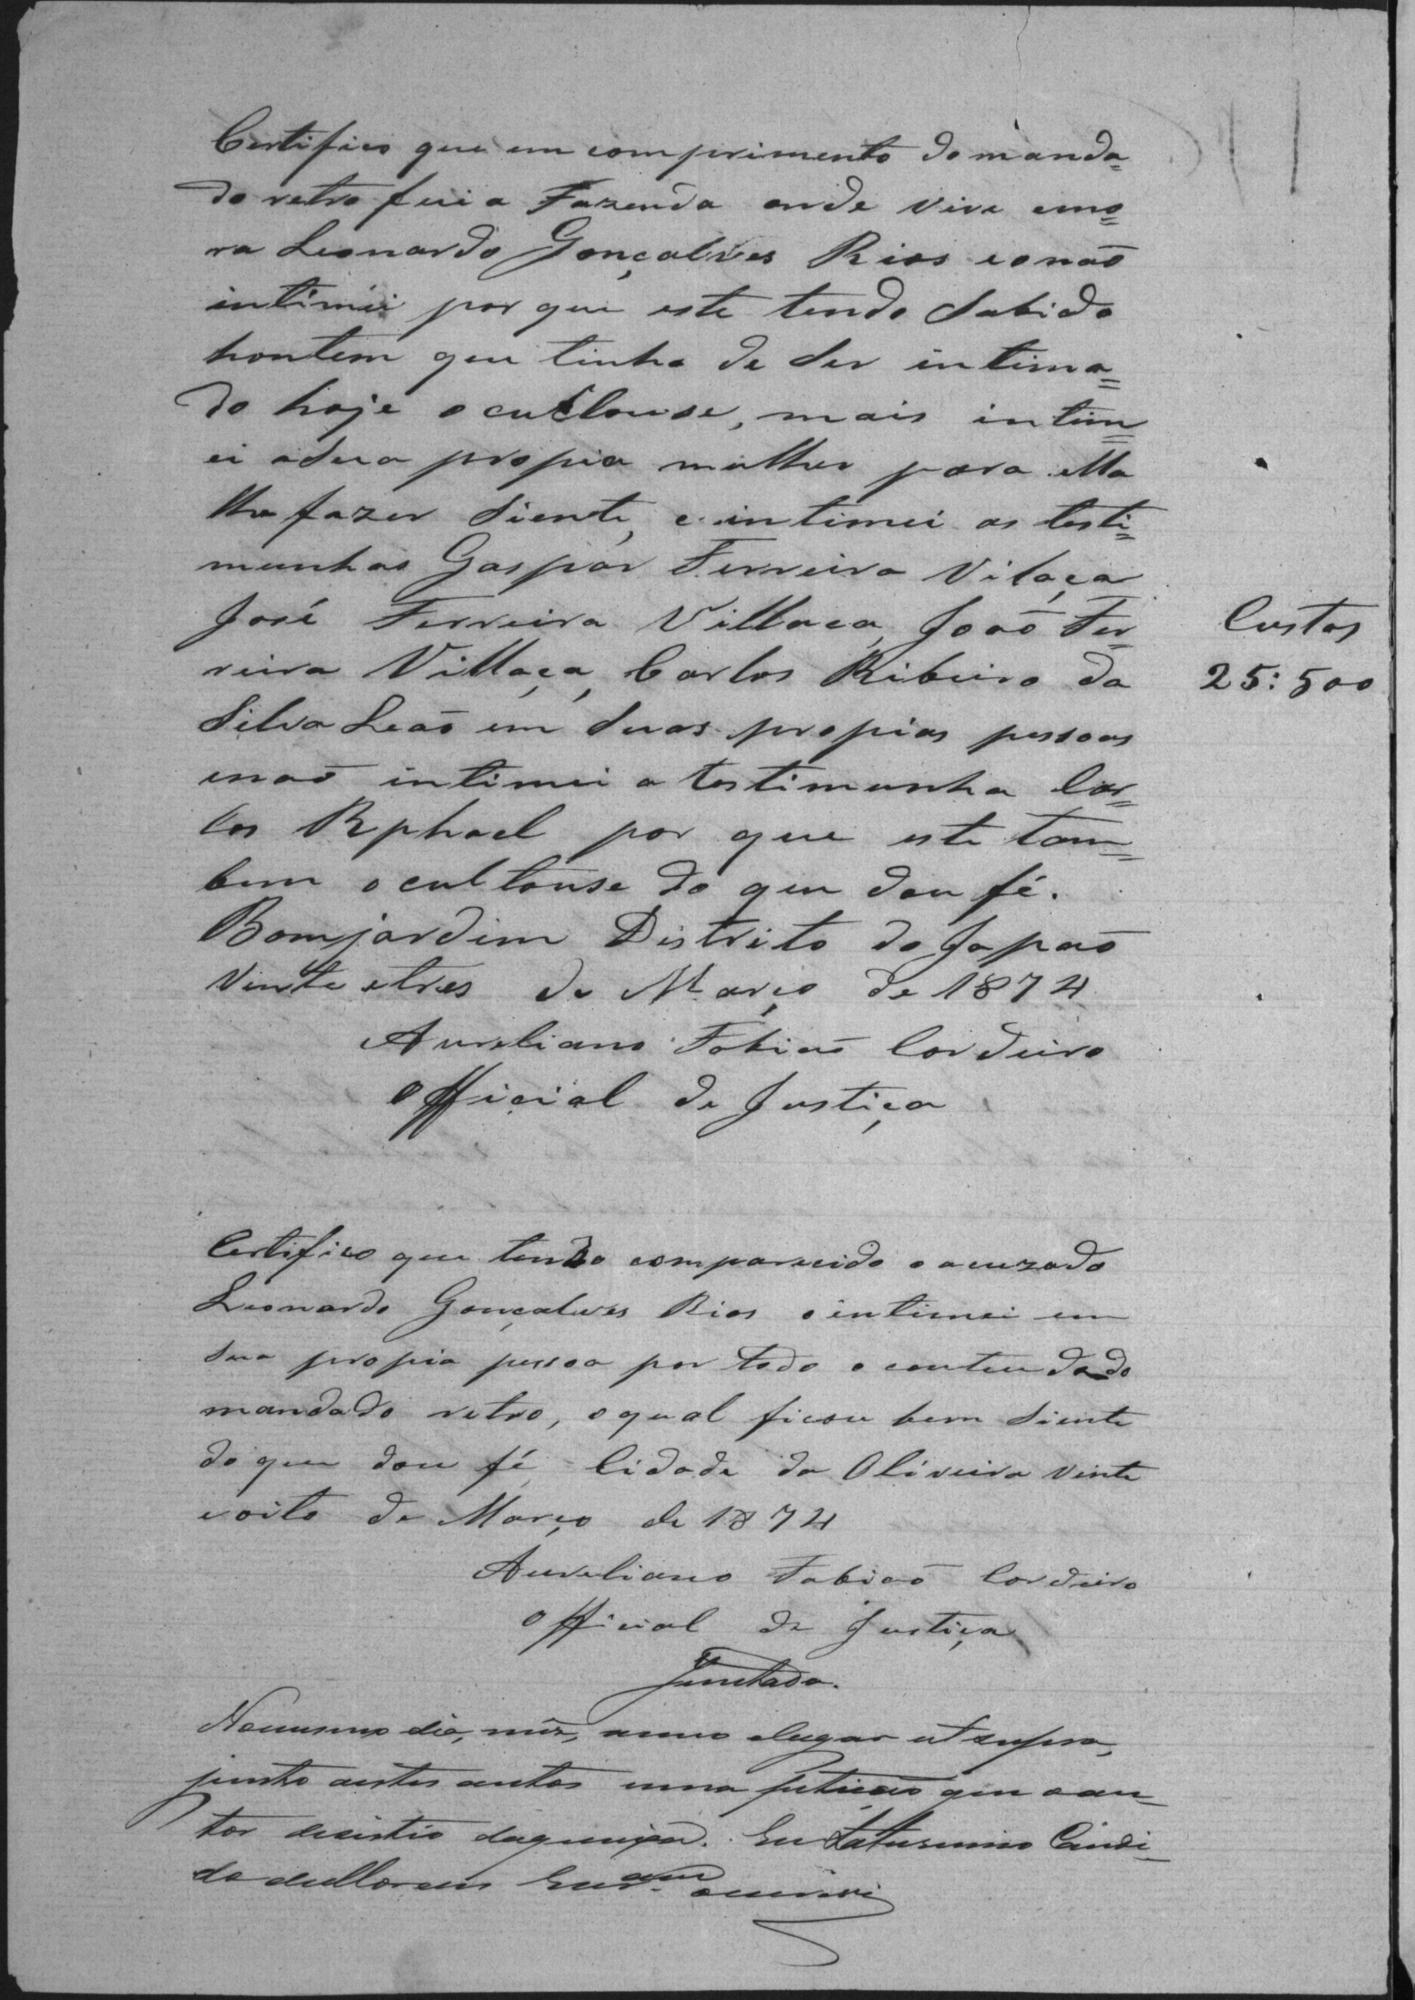 Certifico que em comprimento do manda=
do retro fui a Fazenda onde vive emo=
ra Leonardo Gonçalves Rios e o naõ
intimei por que este tendo Sabido
hontem que tinha de Ser intima=
do hoje ocultouse, mais intim=
ei a Sua propia mulher para ella
lhe fazer Siente, e intimei as testi=
munhas Gaspar Ferreira Vilaça
José Ferreira Villaça, Joaõ Fer=
reira Villaça, Carlos Ribeiro da
Silva Leaõ em Suas propias pessoas
enaõ intimei a testimunha Car=
los Rphael por que este tam=
bem ocultouse do que dou fé.
Bomjardim Distrito do Japaõ
Vinte etres de Março de 1874
Aureliano Fabiaõ Cordeiro
Official de Justiça
Custas
25:500
Certifico que tendo comparecido o acuzado
Leonardo Gonçalves Rios o intimei em
Sua propia pessoa por todo o conteudo do
mandado retro, o qual ficou bem Siente
do que dou fé Cidade da Oliveira vinte
e oito de Março de 1874
Aureliano Fabiaõ Cordeiro
Official de Justiça
Juntada.
No mesmo dia, mêz, anno elugar ut supra,
junto aestes autos uma petiçaõ que o au-
tor desistio da queixa. Eu Saturnino Candi-
do escrivi